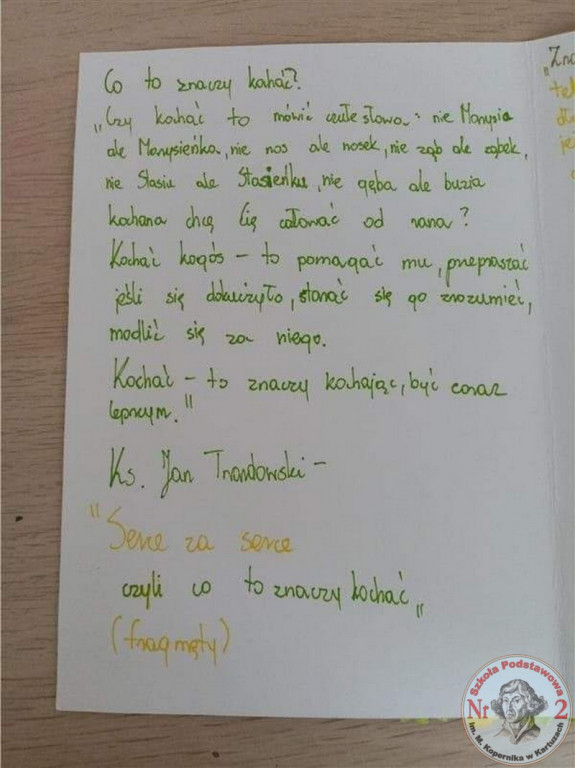 Co to znaczy kochać?
„Czy kochać to mówić czułe słowa: nie Marysia
ale Marysieńka, nie nos ale nosek, nie ząb ale ząbek,
nie Stasiu ale Stasieńku, nie gęba ale buzia
kochana chcę Cię całować od rana?
Kochać kogoś – to pomagać mu, przepraszać
jeśli się dokuczyło, starać się go zrozumieć,
modlić się za niego.
Kochać – to znaczy kochając, być coraz
lepszym."
Ks. Jan Twardowski –
"Serce za serce
czyli co to znaczy kochać„
(fragmęty)
„Zna
tel
dł
je
Szkoła Podstawowa
Nr 2
im. M. Kopernika w Kartuzach